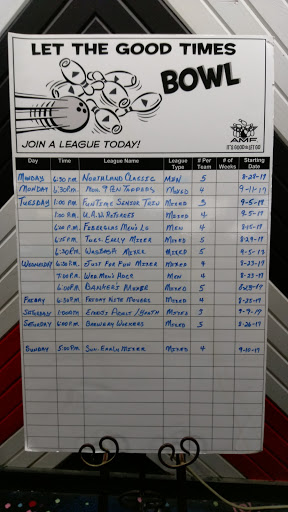 LET THE GOOD TIMES
BOWL
AMF
JOIN A LEAGUE TODAY!
Day Time League Name League Type # Per Team # of Weeks Starting Date
Monday 6:30 P.M. Northland Classic Men 5 8-28-17
Monday 6:30 P.M. Mon. 9 Pin Tappers Mixed 4 9-11-17
Tuesday 1:00 P.M. Funtime Senior Trio Mixed 3 9-5-17
1:00 P.M. U.A.W. Retirees Mixed 4 9-5-17
6:00 P.M. Fiberglas Men's Men 4
6:15 P.M. Tues. Early Mixer Mixed 5 8-29-17
6:30 P.M. Mixed 5 9-5-17
Wednesday 6:30 P.M. Just For Fun Mixed 4 8-23-17
7:00 P.M. Wed Men's Men 4 8-23-17
6:00 P.M. Banker's Mixed Mixed 5
Friday 6:30 P.M. Friday Nite Movers Mixed 4 8-25-17
Saturday 1:00 P.M. Adult/Youth Mixed 3 9-9-17
Saturday 6:00 P.M. Brewery Workers Mixed 3 8-26-17
Sunday 5:00 P.M. Sun. Early Mixer Mixed 4 9-10-17